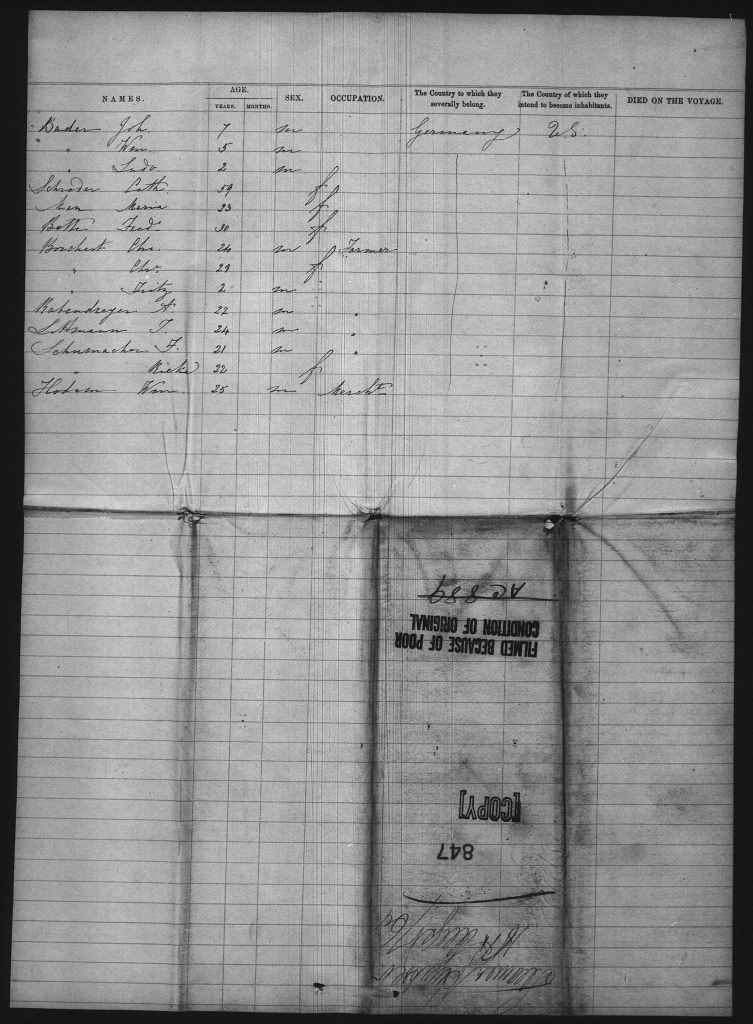 NAMES. AGE. YEARS. MONTHS. SEX. OCCUPATION. The Country to which they severally belong. The Country of which they intend to become inhabitants. DIED ON THE VOYAGE.
Bader Joh. 7 m Germany US.
" Wm. 5 m
" Ludo 2 m
Schroder Cath. 59 f
Maria 23 f
Bothe Fred. 30 f
Borchert Chr. 26 m Farmer
" Chr. 29 f
" Fritz 2 m
Rabendreger A. 22 m "
T. 24 m "
Schumacher F. 21 m "
" Rieke 22 f
Hodson Wm. 25 m Mercht
AC 889
FILMED BECAUSE OF POOR
CONDITION OF ORIGINAL
[COPY]
847